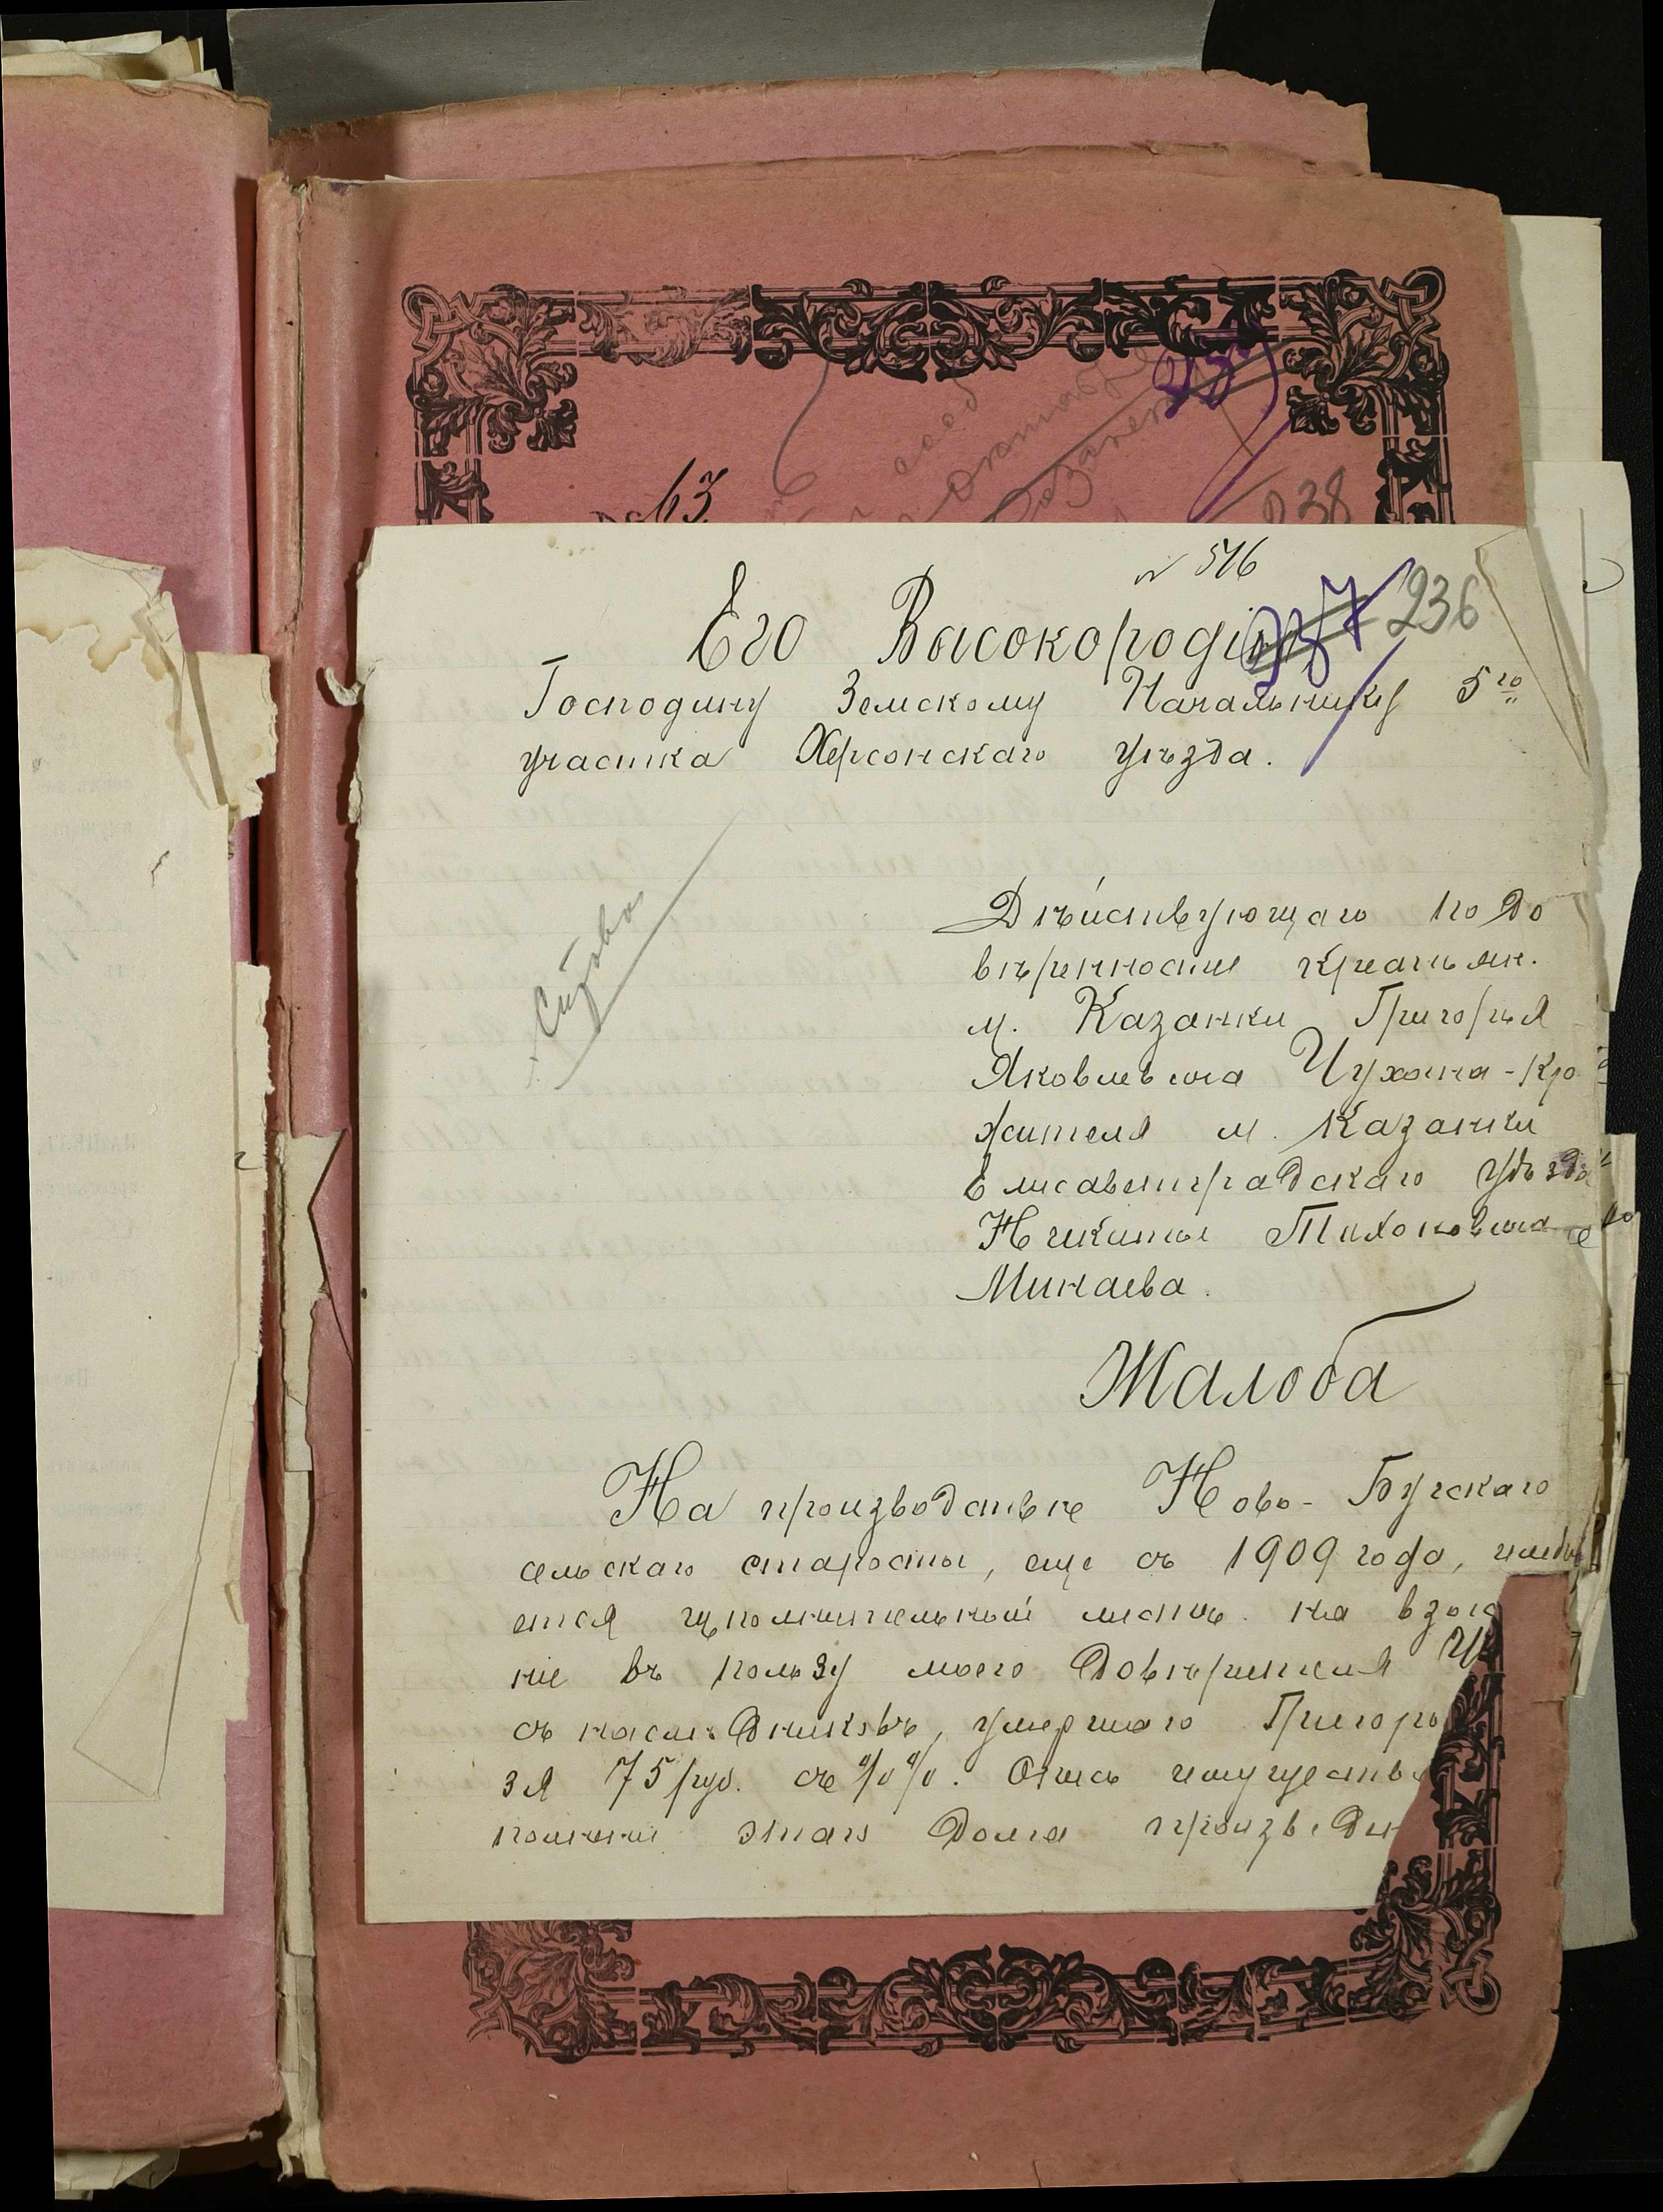 63.
238
№ 516
Его Высокородію
237 236
Господину Земскому Начальнику 5го
участка Херсонскаго уѣзда.
Дѣйствующаго по до
вѣренности крестьян.
м. Казанки Григорья
Яковлевича Чухана-
жителя м. Казанки
Елисаветградскаго уѣзда
Никиты Тихоновича
Минаева.
Жалоба
На производствѣ Ново-Бугскаго
сельскаго старосты, еще съ 1909 года,
ется исполнительный листъ на взыс
ніе въ пользу моего довѣрителя
съ наслѣдниковъ, умершаго Григорь
зя 75 руб. съ %%. Опись имуществ
полненіи этаго долга произведен